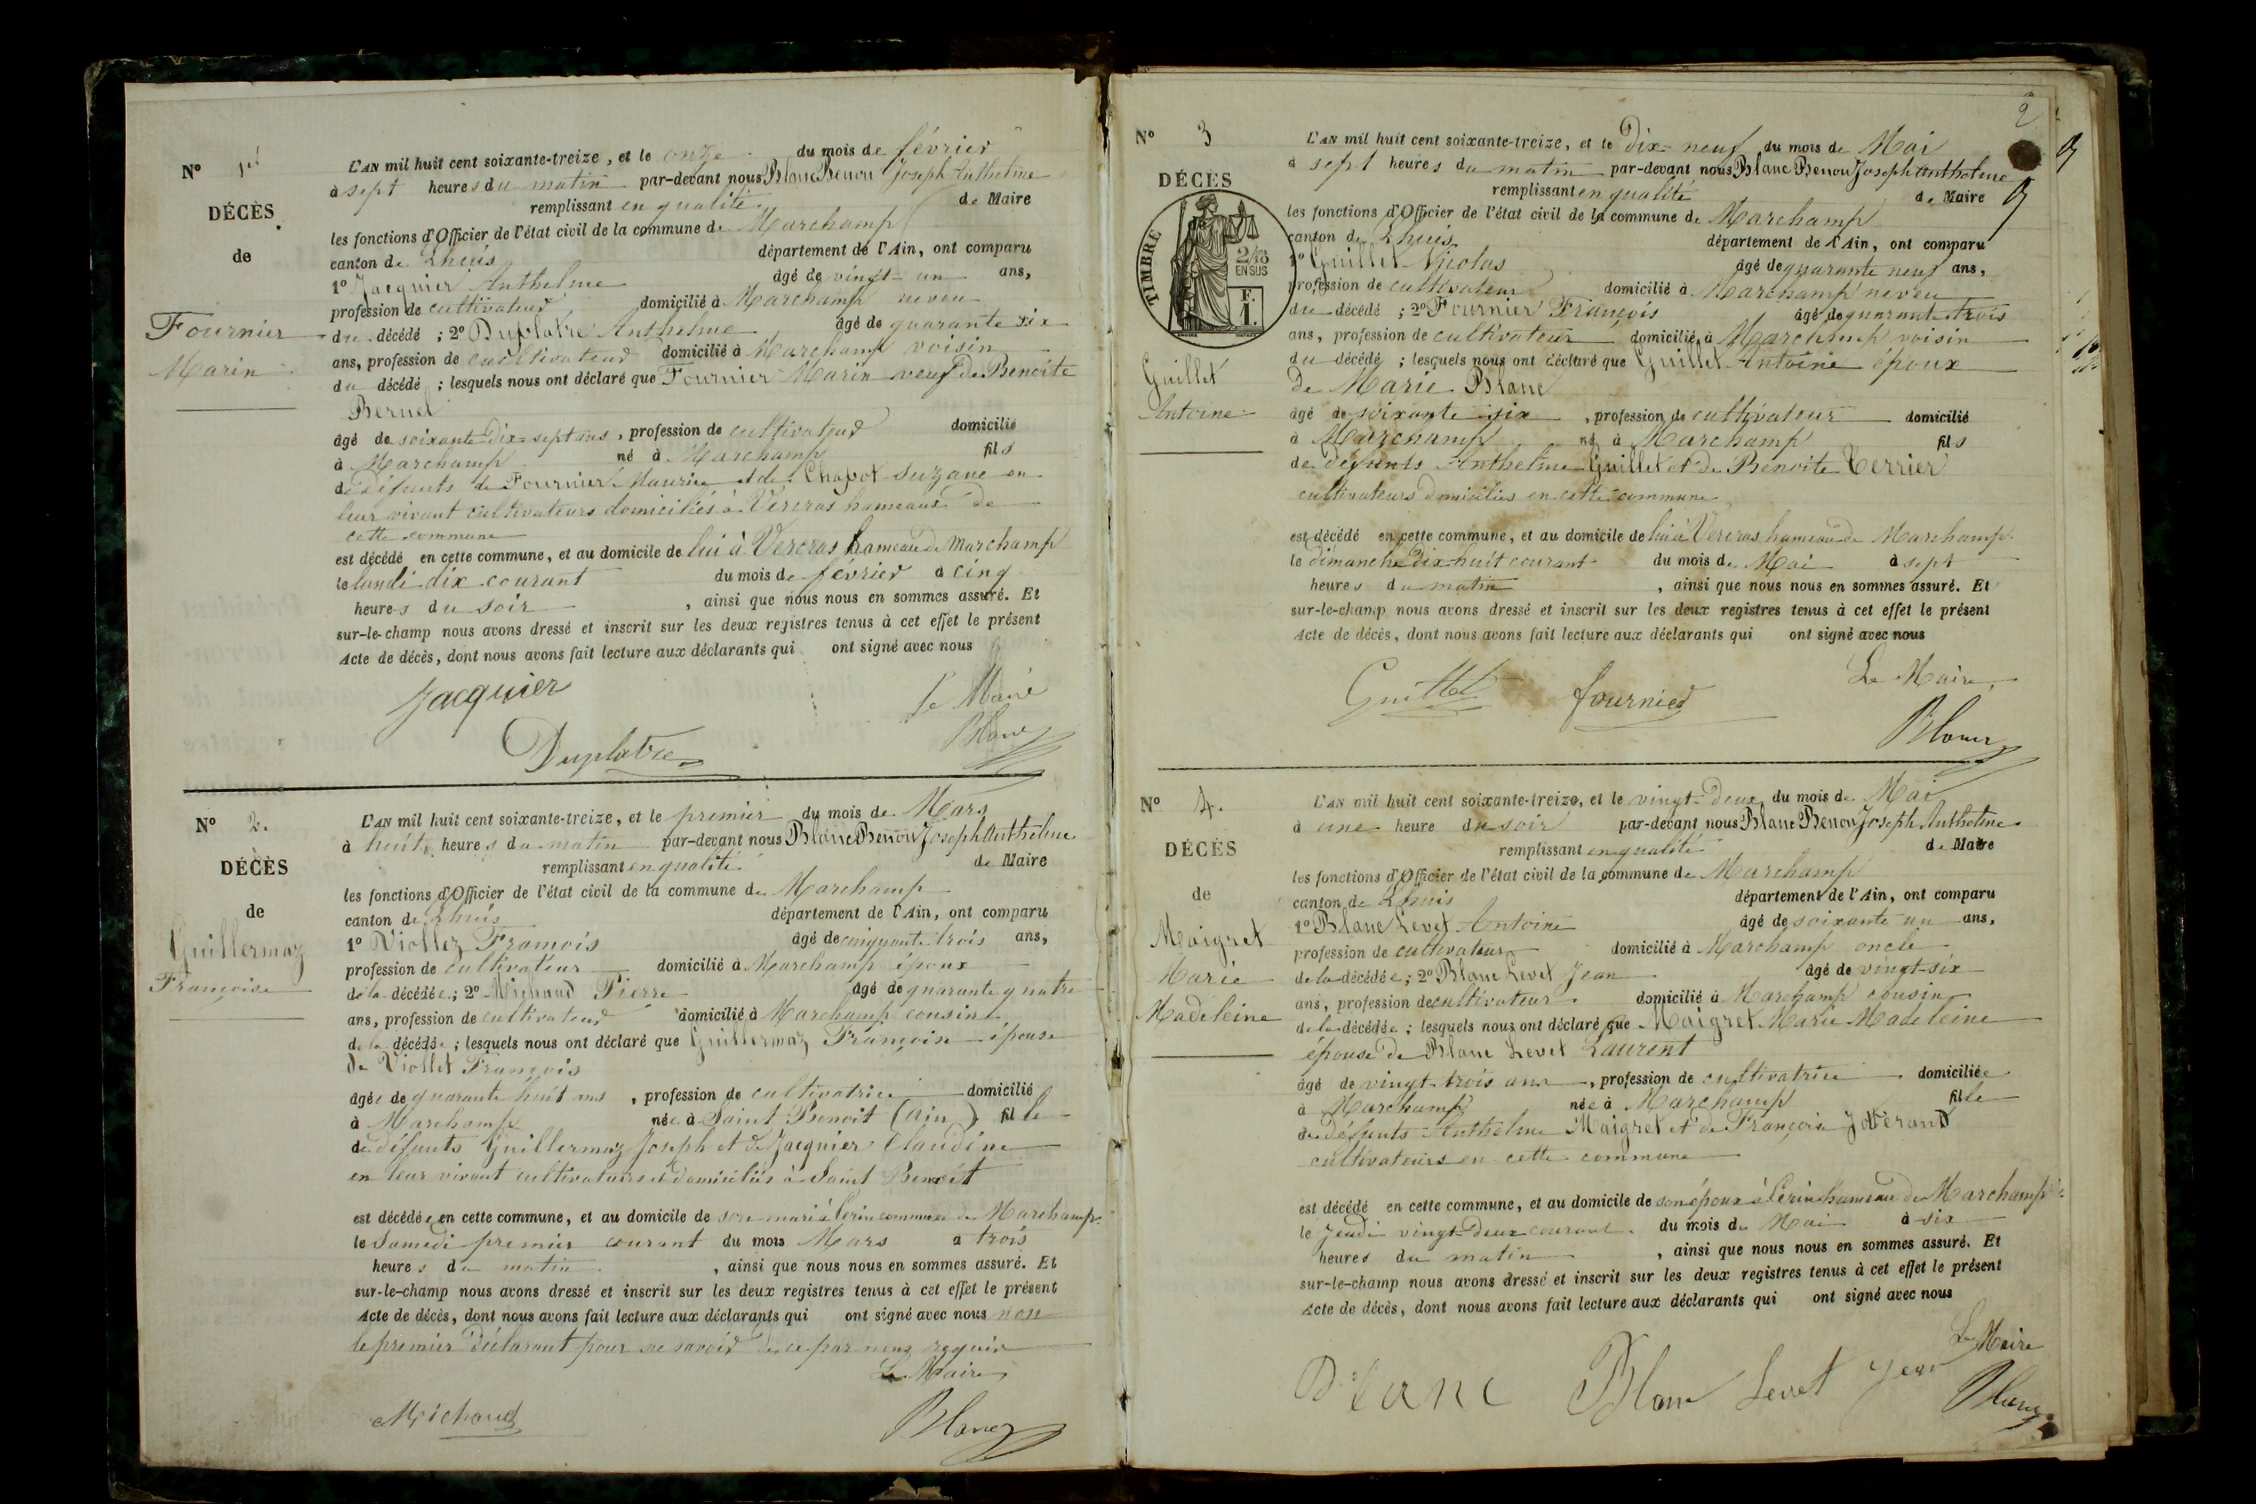 N° 1er
DÉCÈS
de
Fournier
Marin
L'AN mil huit cent soixante-treize, et le onze du mois de février
à sept heures du matin par-devant nous Blanc Benon Joseph Anthelme
remplissant en qualité de Maire
les fonctions d'Officier de l'état civil de la commune de Marchamp
canton de Lhuis département de l'Ain, ont comparu
1° Jacquier Anthelme âgé de vingt-un ans,
profession de cultivateur domicilié à Marchamp neveu
du décédé ; 2° Duplatre Anthelme âgé de quarante six
ans, profession de cultivateur domicilié à Marchamp voisin
du décédé ; lesquels nous ont déclaré que Fournier Marin veuf de Benoite
Bernel
âgé de soixante dix-sept ans, profession de cultivateur domicilié
à Marchamp né à Marchamp fils
de défunts de Fournier Maurice et de Chapot Suzane en
leur vivant cultivateurs domiciliés à Vercras hameaux de
cette commune
est décédé en cette commune, et au domicile de lui à Vercras hameau de Marchamp
le lundi dix courant du mois de février à cinq
heures du soir, ainsi que nous nous en sommes assuré. Et
sur-le-champ nous avons dressé et inscrit sur les deux registres tenus à cet effet le présent
Acte de décès, dont nous avons fait lecture aux déclarants qui ont signé avec nous
Jacquier
Le Maire
Duplatre
Blanc
N° 2.
DÉCÈS
de
Guillermoz
Françoise
L'AN mil huit cent soixante-treize, et le premier du mois de Mars
à huit heures du matin par-devant nous Blanc Benon Joseph Anthelme
remplissant en qualité de Maire
les fonctions d'Officier de l'état civil de la commune de Marchamp
canton de Lhuis département de l'Ain, ont comparu
1° Viollez François âgé de cinquante trois ans,
profession de cultivateur domicilié à Marchamp époux
de la décédée ; 2° Michaud Pierre âgé de quarante quatre
ans, profession de cultivateur domicilié à Marchamp cousin
de la décédée ; lesquels nous ont déclaré que Guillermoz Françoise épouse
de Viollet François
âgée de quarante huit ans, profession de cultivatrice domicilié
à Marchamp née à Saint Benoit (Ain) fille
de défunts Guillermoz Joseph et de Jacquier Claudine
en leur vivant cultivateurs et domiciliés à Saint Benoit
est décédée en cette commune, et au domicile de son mari à Cerin commune de Marchamp
le Samedi premier courant du mois Mars à trois
heures du matin, ainsi que nous nous en sommes assuré. Et
sur-le-champ nous avons dressé et inscrit sur les deux registres tenus à cet effet le présent
Acte de décès, dont nous avons fait lecture aux déclarants qui ont signé avec nous non
le premier déclarant pour ne savoir de ce par nous requis
Le Maire
Michaud
Blanc
2
N° 3
DÉCÈS
TIMBRE
2/10
EN SUS
F.
1.
Guillet
Antoine
L'AN mil huit cent soixante-treize, et le Dix-neuf du mois de Mai
à sept heures du matin par-devant nous Blanc Benon Joseph Anthelme
remplissant en qualité de Maire
les fonctions d'Officier de l'état civil de la commune de Marchamp
canton de Lhuis département de l'Ain, ont comparu
1° Guillet Nicolas âgé de quarante neuf ans,
profession de cultivateur domicilié à Marchamp neveu
du décédé ; 2° Fournier François âgé de quarante trois
ans, profession de cultivateur domicilié à Marchamp voisin
du décédé ; lesquels nous ont déclaré que Guillet Antoine époux
de Marie Blanc
âgé de soixante six, profession de cultivateur domicilié
à Marchamp né à Marchamp fils
de défunts Anthelme Guillet et de Benoite Terrier
cultivateurs domiciliés en cette commune
est décédé en cette commune, et au domicile de lui à Vercras hameau de Marchamp
le dimanche dix-huit courant du mois de Mai à sept
heures du matin, ainsi que nous nous en sommes assuré. Et
sur-le-champ nous avons dressé et inscrit sur les deux registres tenus à cet effet le présent
Acte de décès, dont nous avons fait lecture aux déclarants qui ont signé avec nous
Le Maire
Guillet fournier
Blanc
N° 4.
DÉCÈS
de
Maigret
Marie
Madeleine
L'AN mil huit cent soixante-treize, et le vingt-deux du mois de Mai
à une heure du soir par-devant nous Blanc Benon Joseph Anthelme
remplissant en qualité de Maire
les fonctions d'Officier de l'état civil de la commune de Marchamp
canton de Lhuis département de l'Ain, ont comparu
1° Blanc Levet Antoine âgé de soixante un ans,
profession de cultivateur domicilié à Marchamp oncle
de la décédée ; 2° Blanc Levet Jean âgé de vingt-six
ans, profession de cultivateur domicilié à Marchamp cousin
de la décédée ; lesquels nous ont déclaré que Maigret Marie Madeleine
épouse de Blanc Levet Laurent
âgé de vingt-trois ans, profession de cultivatrice domiciliée
à Marchamp née à Marchamp fille
de défunts Anthelme Maigret et de Françoise
cultivateurs en cette commune
est décédé en cette commune, et au domicile de son époux à Cerin hameau de Marchamp
le jeudi vingt-deux courant du mois de Mai à six
heures du matin, ainsi que nous nous en sommes assuré. Et
sur-le-champ nous avons dressé et inscrit sur les deux registres tenus à cet effet le présent
Acte de décès, dont nous avons fait lecture aux déclarants qui ont signé avec nous
Le Maire
Blanc Blanc Levet Jean
Blanc